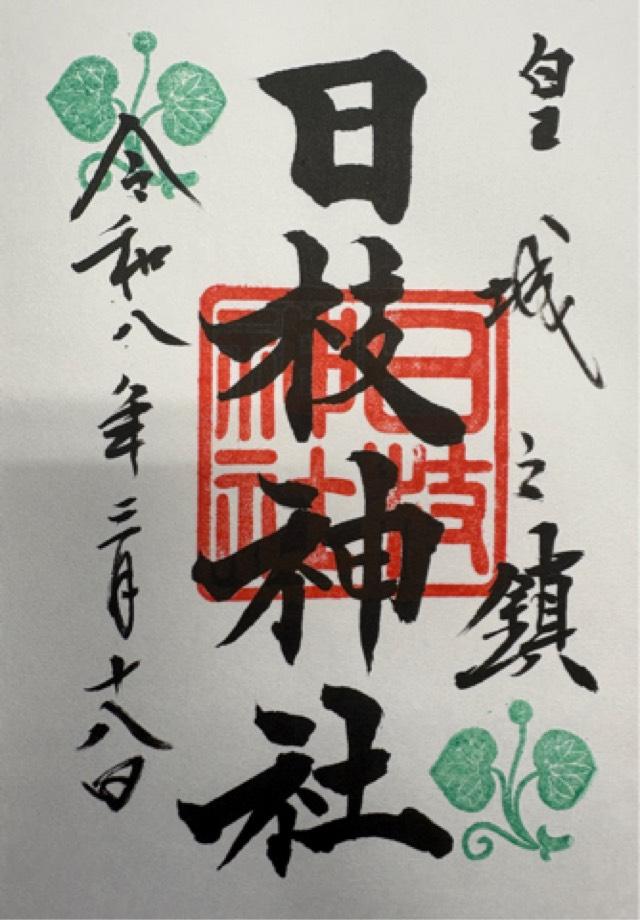 皇城之鎮
日枝神社
日枝神社
令和八年三月十八日